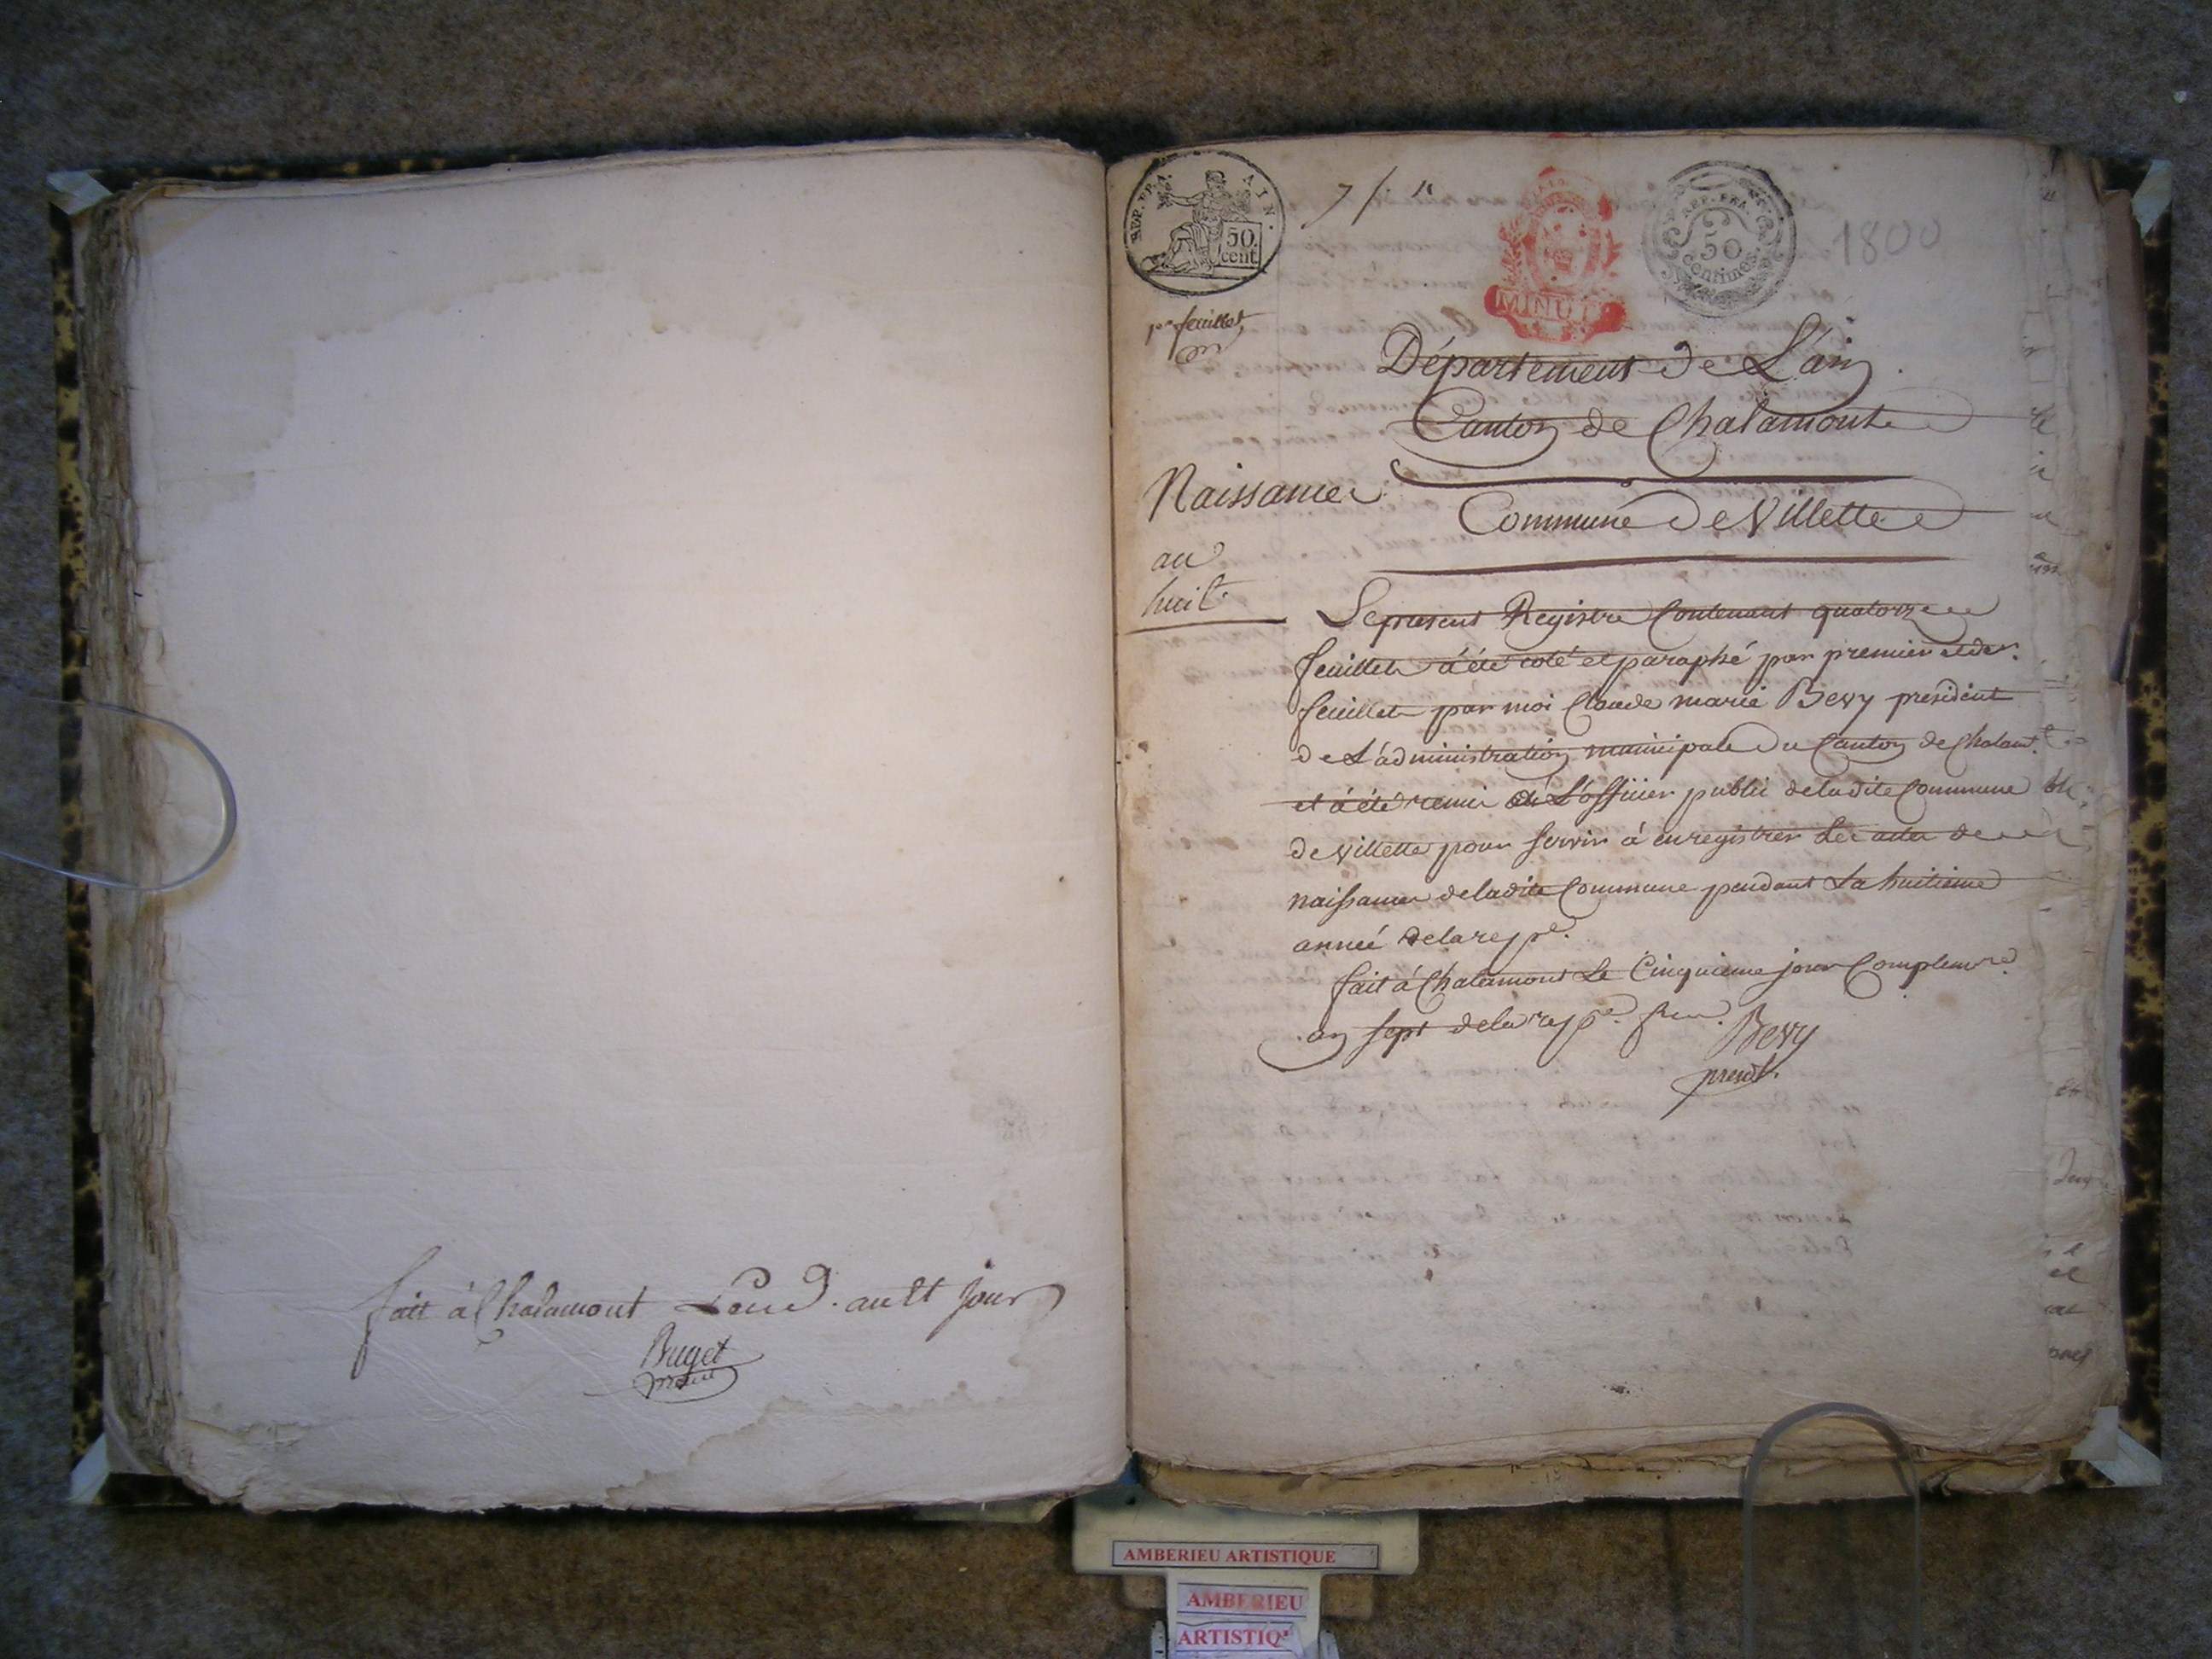 fait à Chalamont Led. an et Jour
Buget
REP. FRA. AIN.
50.
cent.
MINUTE
REP. FRA.
50
centimes.
1800
1er feuillet
Département de L'ain
Canton de Chalamont
Naissances
Commune de Villette
an
huit.
Le présent Registre Contenant quatorze
feuillets à été coté et paraphé par premier et der.
feuillets par moi Claude marie Bevy président
de L'administration municipale du Canton de Chalamt.
et à été remis à L'officier public de ladite Commune
de Villette pour servir à enregistrer Les actes de
naissances de ladite Commune pendant La huitieme
année de la repe.
fait à Chalamont Le Cinquieme jour Complemre.
an sept de la repe.
Bevy
presidt.
AMBERIEU ARTISTIQUE
AMBERIEU
ARTISTIQ